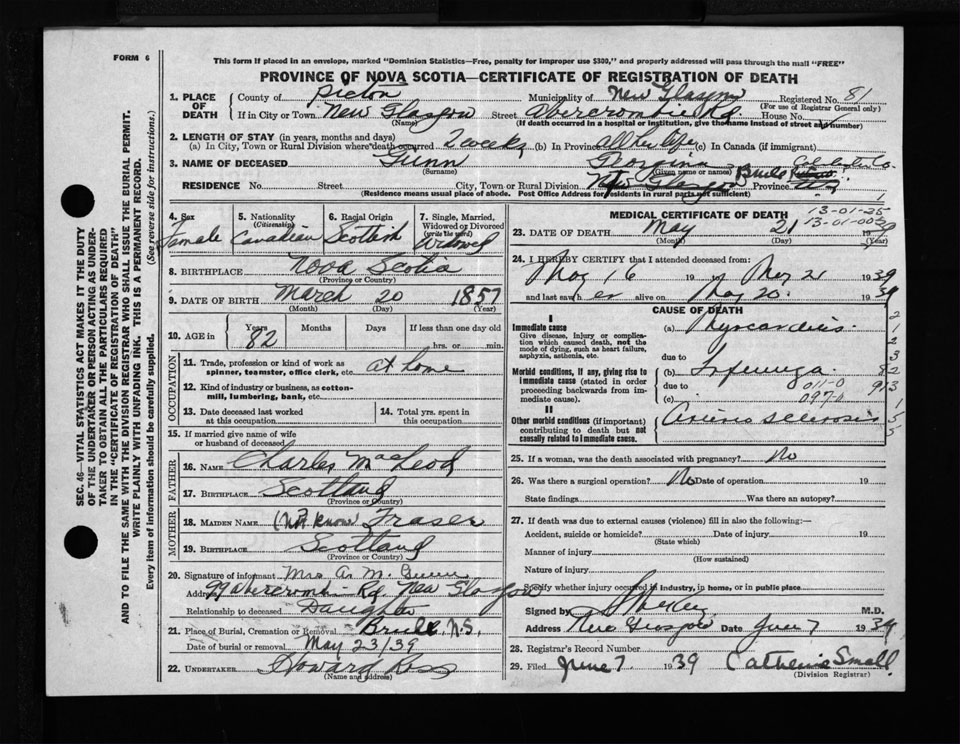 FORM 6
This form if placed in an envelope, marked "Dominion Statistics—Free, penalty for improper use $300," and properly addressed will pass through the mail "FREE"
PROVINCE OF NOVA SCOTIA—CERTIFICATE OF REGISTRATION OF DEATH
1. PLACE OF DEATH County of Pictou Municipality of New Glasgow Registered No. 81
(For use of Registrar General only)
If in City or Town New Glasgow Street Abercrombie Rd House No.
(Name) (If death occurred in a hospital or institution, give the name instead of street and number)
2. LENGTH OF STAY (in years, months and days)
(a) In City, Town or Rural Division where death occurred 2 weeks (b) In Province all her life (c) In Canada (if immigrant)
3. NAME OF DECEASED Gunn Georgina
(Surname) (Given name or names) Brule Colchester Co.
RESIDENCE No. Street City, Town or Rural Division New Glasgow Province
(Residence means usual place of abode. Post Office Address for Residents in rural parts not sufficient)
4. Sex Female
5. Nationality (Citizenship) Canadian
6. Racial Origin Scottish
7. Single, Married, Widowed or Divorced (write the word) Widowed
8. BIRTHPLACE Nova Scotia
(Province or Country)
9. DATE OF BIRTH March 20 1857
(Month) (Day) (Year)
10. AGE in Years 82 Months Days If less than one day old hrs. or min.
OCCUPATION
11. Trade, profession or kind of work as spinner, teamster, office clerk, etc. at home
12. Kind of industry or business, as cotton-mill, lumbering, bank, etc.
13. Date deceased last worked at this occupation
14. Total yrs. spent in this occupation
15. If married give name of wife or husband of deceased
FATHER
16. NAME Charles MacLeod
17. BIRTHPLACE Scotland
(Province or Country)
MOTHER
18. MAIDEN NAME (Not know) Fraser
19. BIRTHPLACE Scotland
(Province or Country)
20. Signature of informant Mrs A. M. Gunn
Address 99 Abercrombie Rd. New Glasgow
Relationship to deceased Daughter
21. Place of Burial, Cremation or Removal Brule, N.S.
Date of burial or removal May 23/39
22. UNDERTAKER Howard Ross
(Name and address)
MEDICAL CERTIFICATE OF DEATH
13-01-25
13-01-00
23. DATE OF DEATH May 21 39
(Month) (Day) (Year)
24. I HEREBY CERTIFY that I attended deceased from:
May 16 19 to May 21 1939
and last saw her alive on May 20 1939
CAUSE OF DEATH
I
Immediate cause
Give disease, injury or complication which caused death, not the mode of dying, such as heart failure, asphyxia, asthenia, etc.
(a) Myocarditis
due to
Morbid conditions, if any, giving rise to immediate cause (stated in order proceeding backwards from immediate cause).
(b) Influenza
due to 011-0
(c) 097-0
913
II
Other morbid conditions (if important) contributing to death but not causally related to immediate cause.
Arterio sclerosis
25. If a woman, was the death associated with pregnancy? No
26. Was there a surgical operation? No Date of operation 19
State findings Was there an autopsy?
27. If death was due to external causes (violence) fill in also the following:—
Accident, suicide or homicide? Date of injury 19
(State which)
Manner of injury
(How sustained)
Nature of injury
Specify whether injury occurred in industry, in home, or in public place
Signed by M.D.
Address New Glasgow Date June 7 1939
28. Registrar's Record Number
29. Filed June 7 1939 Catherine Small
(Division Registrar)
SEC. 46—VITAL STATISTICS ACT MAKES IT THE DUTY
OF THE UNDERTAKER OR PERSON ACTING AS UNDER-
TAKER TO OBTAIN ALL THE PARTICULARS REQUIRED
IN THE "CERTIFICATE OF REGISTRATION OF DEATH"
AND TO FILE THE SAME WITH THE DIVISION REGISTRAR WHO SHALL ISSUE THE BURIAL PERMIT.
WRITE PLAINLY WITH UNFADING INK. THIS IS A PERMANENT RECORD.
Every item of information should be carefully supplied. (See reverse side for instructions.)